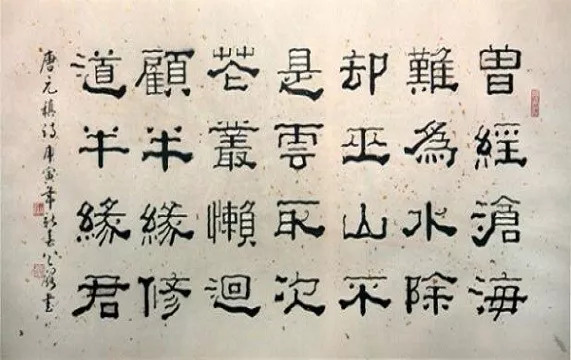 曾經滄海
難為水除
却巫山不
是雲取次
花叢懶迴
顧半緣修
道半緣君
唐元稹詩庚寅年新春